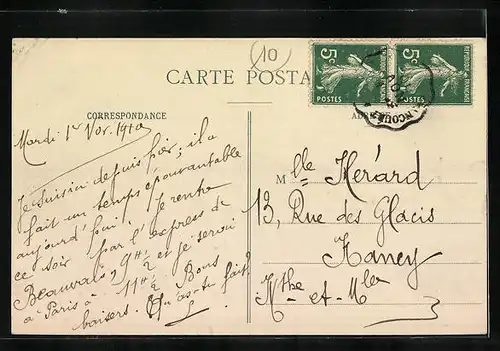 10
CARTE POSTA
5c
POSTES
5c
RÉPUBLIQUE FRANÇAISE
POSTES
CORRESPONDANCE
AD
Mardi 1er Nov. 1910
Je suis ici depuis hier; il a
fait un temps épouvantable
aujourd'hui. Je rentre
ce soir par l'express de
Beauvais 9h 1/2 et je serai
à Paris à 11h 1/2. Bons
baisers. Qu'as-tu fait?
Mlle Hérard
13, Rue des Glacis
Nancy
Mthe-et-Mlle